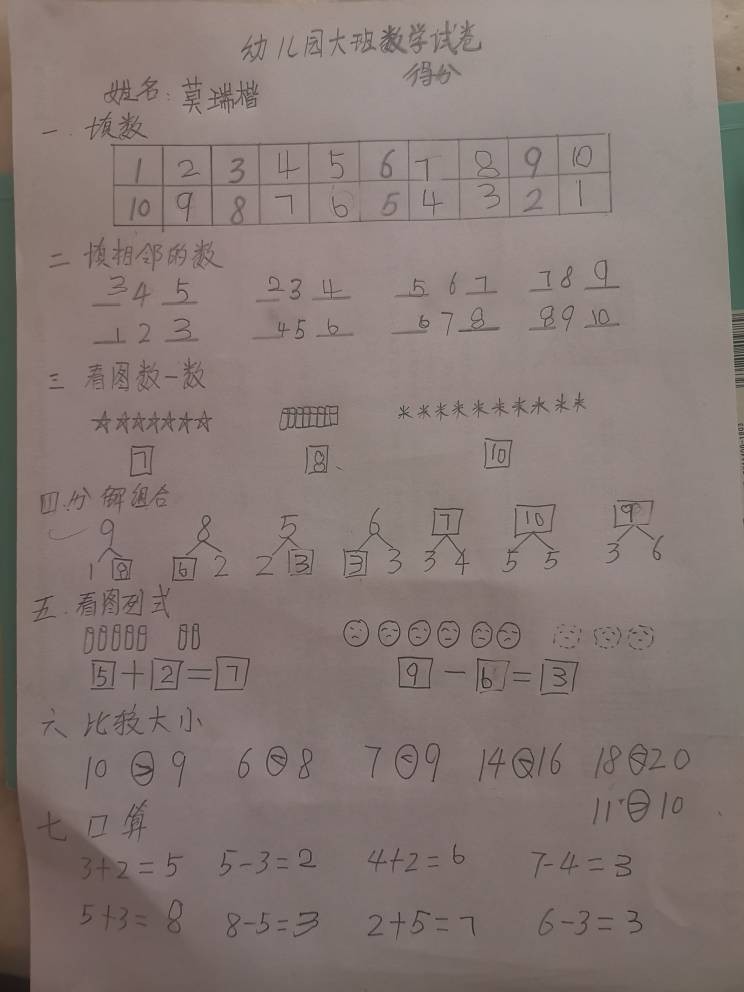 幼儿园大班数学试卷
得分
姓名:莫瑞楷
一.填数
1 2 3 4 5 6 7 8 9 10
10 9 8 7 6 5 4 3 2 1
二 填相邻的数
3 4 5 2 3 4 5 6 7 7 8 9
1 2 3 4 5 6 6 7 8 8 9 10
三 看图数一数
7 8、 10
四.分解组合
9 8 5 6 7 10 9
1 8 6 2 2 3 3 3 3 4 5 5 3 6
五.看图列式
5+2=7 9-6=3
六 比较大小
10 > 9 6 < 8 7 < 9 14 < 16 18 < 20
11 10
七 口算
3+2=5 5-3=2 4+2=6 7-4=3
5+3=8 8-5=3 2+5=7 6-3=3